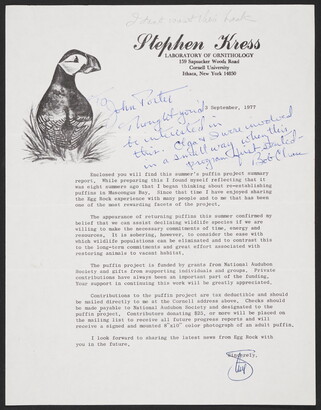 I don't want this back
Stephen Kress
LABORATORY OF ORNITHOLOGY
159 Sapsucker Woods Road
Cornell University
Ithaca, New York 14850
September, 1977
John Porter
Thought you'd
be interested in
this. Elgin & I were involved
in a small way when this
program first started
Bob
Enclosed you will find this summer's puffin project summary
report. While preparing this I found myself reflecting that it
was eight summers ago that I began thinking about re-establishing
puffins in Muscongus Bay. Since that time I have enjoyed sharing
the Egg Rock experience with many people and to me that has been
one of the most rewarding facets of the project.
The appearance of returning puffins this summer confirmed my
belief that we can assist declining wildlife species if we are
willing to make the necessary commitments of time, energy and
resources. It is sobering, to consider the ease with
which wildlife populations can be eliminated and to contrast this
to the long-term commitments and great effort associated with
restoring animals to vacant habitat.
The puffin project is funded by grants from National Audubon
Society and gifts from supporting individuals and groups. Private
contributions have always been an important part of the funding.
Your support in continuing this work will be greatly appreciated.
Contributions to the puffin project are tax deductible and should
be mailed directly to me at the Cornell address above. Checks should
be made payable to National Audubon Society and designated to the
puffin project. Contributors donating $20, or more will be placed on
the mailing list to receive all future progress reports and will
receive a signed and mounted 8"x10" color photograph of an adult puffin.
I look forward to sharing the latest news from Egg Rock with
you in the future.
Sincerely,